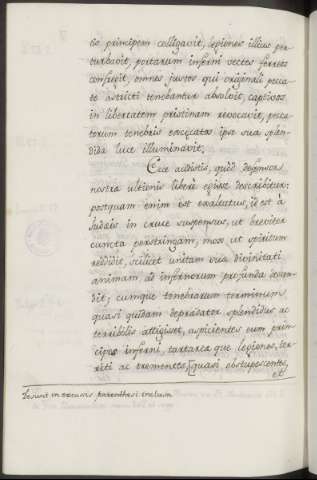 tis principem colligavit, legiones illius per-
turbavit, portarum inferni vectes ferreos
confregit, omnes justos qui originali pecca-
to astricti tenebantur absolvit, captivos
in libertatem pristinam revocavit, pecca-
torum tenebris excæcatos ipse sua splen-
dida luce illuminavit.
Ecce audistis, quid defensor
nostræ ultionis liberè egisse describitur;
postquam enim est exaltatus, id est à
Judæis in cruce suspensus, ut breviter
cuncta perstringam, mox ut spiritum
reddidit, scilicet unitam suæ divinitati
animam, ad infernorum profunda descen-
dit; cumque tenebrarum terminum
quasi quidam deprædator splendidus ac
terribilis attigisset, aspicientes eum prin-
cipes inferni, tartareæque legiones, ter-
riti ac trementes, [quasi obstupescentes,
et
Desunt in excusis parenthesi inclusa